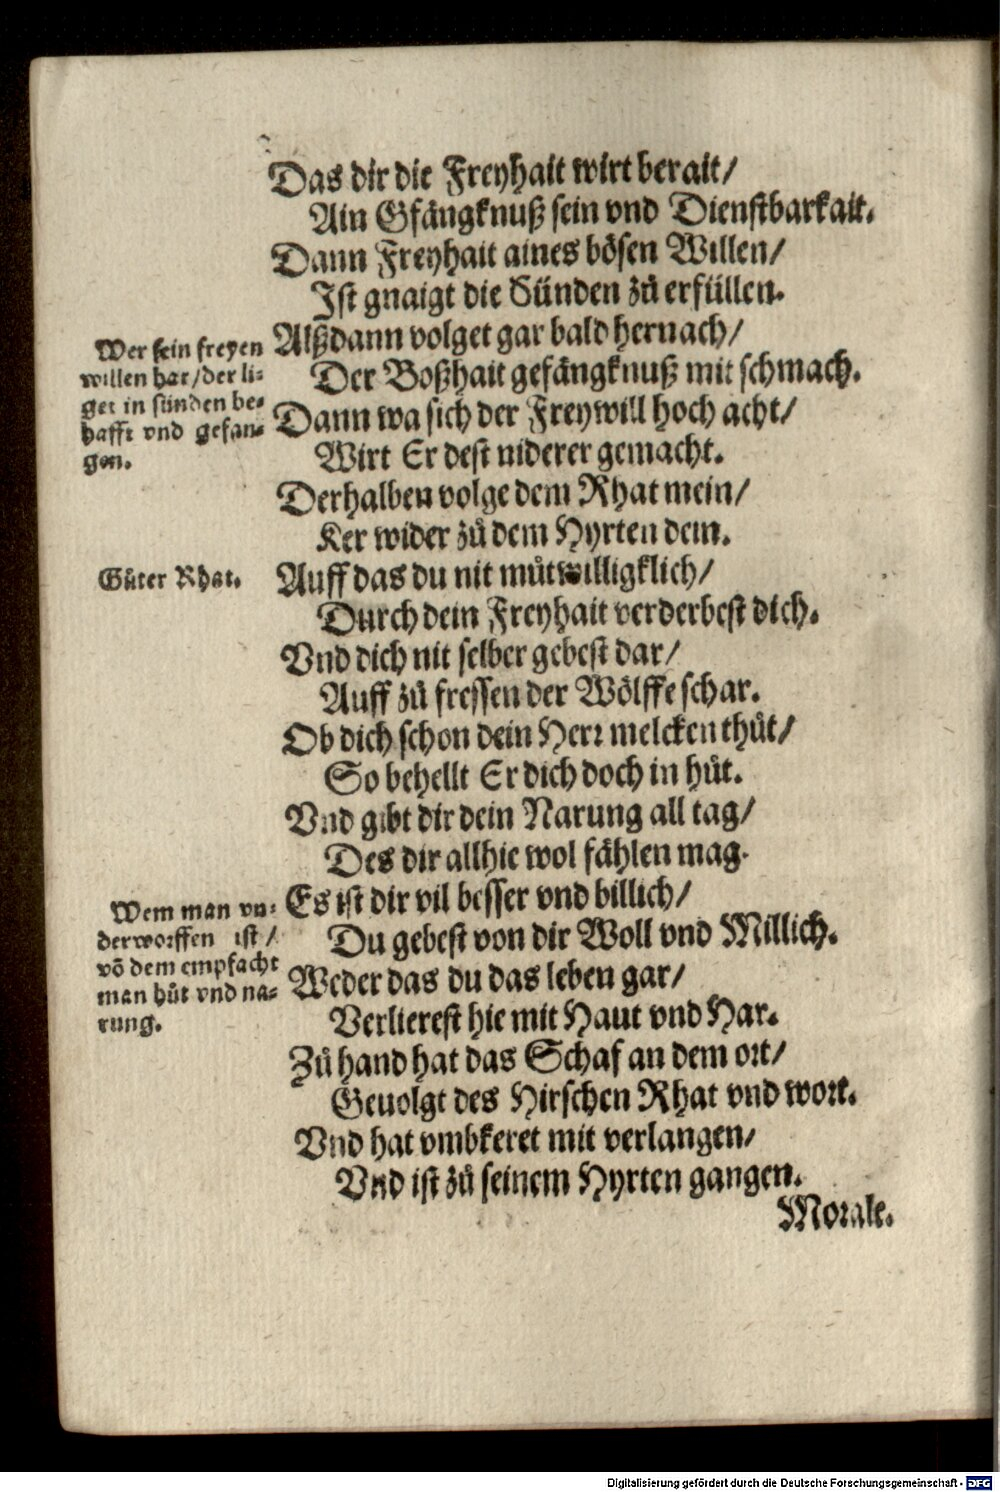 Das dir die Freyhait wirt berait/
Ain Gfängknuß sein vnd Dienstbarkait.
Dann Freyhait aines bösen Willen/
Ist gnaigt die Sünden zů erfüllen.
Wer sein freyen
willen hat/der li-
get in sünden be-
hafft vnd gefan-
gen.
Alßdann volget gar bald hernach/
Der Boßhait gefängknuß mit schmach.
Dann wa sich der Freywill hoch acht/
Wirt Er dest niderer gemacht.
Derhalben volge dem Rhat mein/
Ker wider zů dem Hyrten dein.
Gůter Rhat.
Auff das du nit můtwilligklich/
Durch dein Freyhait verderbest dich.
Vnd dich nit selber gebest dar/
Auff zů fressen der Wölffe schar.
Ob dich schon dein Herr melcken thůt/
So behellt Er dich doch in hůt.
Vnd gibt dir dein Narung all tag/
Des dir allhie wol fählen mag.
Wem man vn-
derworffen ist/
võ dem empfacht
man hůt vnd na-
rung.
Es ist dir vil besser vnd billich/
Du gebest von dir Woll vnd Millich.
Weder das du das leben gar/
Verlierest hie mit Haut vnd Har.
Zů hand hat das Schaf an dem ort/
Geuolgt des Hirschen Rhat vnd wort.
Vnd hat vmbkeret mit verlangen/
Vnd ist zů seinem Hyrten gangen.
Morale.
Digitalisierung gefördert durch die Deutsche Forschungsgemeinschaft - DFG